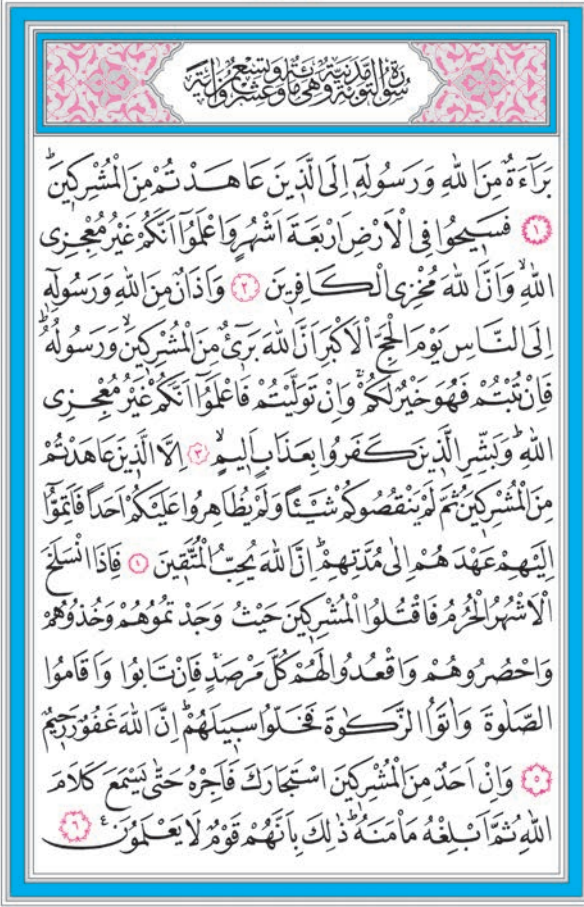 سُورَةُ التَّوْبَةِ مَدَنِيَّةٌ وَهِيَ مِائَةٌ وَتِسْعٌ وَعِشْرُونَ اٰيَةً
بَرَٓاءَةٌ مِنَ اللّٰهِ وَرَسُولِه۪ٓ اِلَى الَّذ۪ينَ عَاهَدْتُمْ مِنَ الْمُشْرِك۪ينَۜ
﴿١﴾ فَس۪يحُوا فِي الْاَرْضِ اَرْبَعَةَ اَشْهُرٍ وَاعْلَمُٓوا اَنَّكُمْ غَيْرُ مُعْجِزِي
اللّٰهِۙ وَاَنَّ اللّٰهَ مُخْزِي الْكَافِر۪ينَ ﴿٢﴾ وَاَذَانٌ مِنَ اللّٰهِ وَرَسُولِه۪ٓ
اِلَى النَّاسِ يَوْمَ الْحَجِّ الْاَكْبَرِ اَنَّ اللّٰهَ بَر۪ٓيءٌ مِنَ الْمُشْرِك۪ينَۙ وَرَسُولُهُۜ
فَاِنْ تُبْتُمْ فَهُوَ خَيْرٌ لَكُمْۚ وَاِنْ تَوَلَّيْتُمْ فَاعْلَمُٓوا اَنَّكُمْ غَيْرُ مُعْجِزِي
اللّٰهِۜ وَبَشِّرِ الَّذ۪ينَ كَفَرُوا بِعَذَابٍ اَل۪يمٍۙ ﴿٣﴾ اِلَّا الَّذ۪ينَ عَاهَدْتُمْ
مِنَ الْمُشْرِك۪ينَ ثُمَّ لَمْ يَنْقُصُوكُمْ شَيْـٔاً وَلَمْ يُظَاهِرُوا عَلَيْكُمْ اَحَداً فَاَتِمُّٓوا
اِلَيْهِمْ عَهْدَهُمْ اِلٰى مُدَّتِهِمْۜ اِنَّ اللّٰهَ يُحِبُّ الْمُتَّق۪ينَ ﴿٤﴾ فَاِذَا انْسَلَخَ
الْاَشْهُرُ الْحُرُمُ فَاقْتُلُوا الْمُشْرِك۪ينَ حَيْثُ وَجَدْتُمُوهُمْ وَخُذُوهُمْ
وَاحْصُرُوهُمْ وَاقْعُدُوا لَهُمْ كُلَّ مَرْصَدٍۚ فَاِنْ تَابُوا وَاَقَامُوا
الصَّلٰوةَ وَاٰتَوُا الزَّكٰوةَ فَخَلُّوا سَب۪يلَهُمْۜ اِنَّ اللّٰهَ غَفُورٌ رَح۪يمٌ
﴿٥﴾ وَاِنْ اَحَدٌ مِنَ الْمُشْرِك۪ينَ اسْتَجَارَكَ فَاَجِرْهُ حَتّٰى يَسْمَعَ كَلَامَ
اللّٰهِ ثُمَّ اَبْلِغْهُ مَأْمَنَهُۜ ذٰلِكَ بِاَنَّهُمْ قَوْمٌ لَا يَعْلَمُونَ۟ ﴿٦﴾